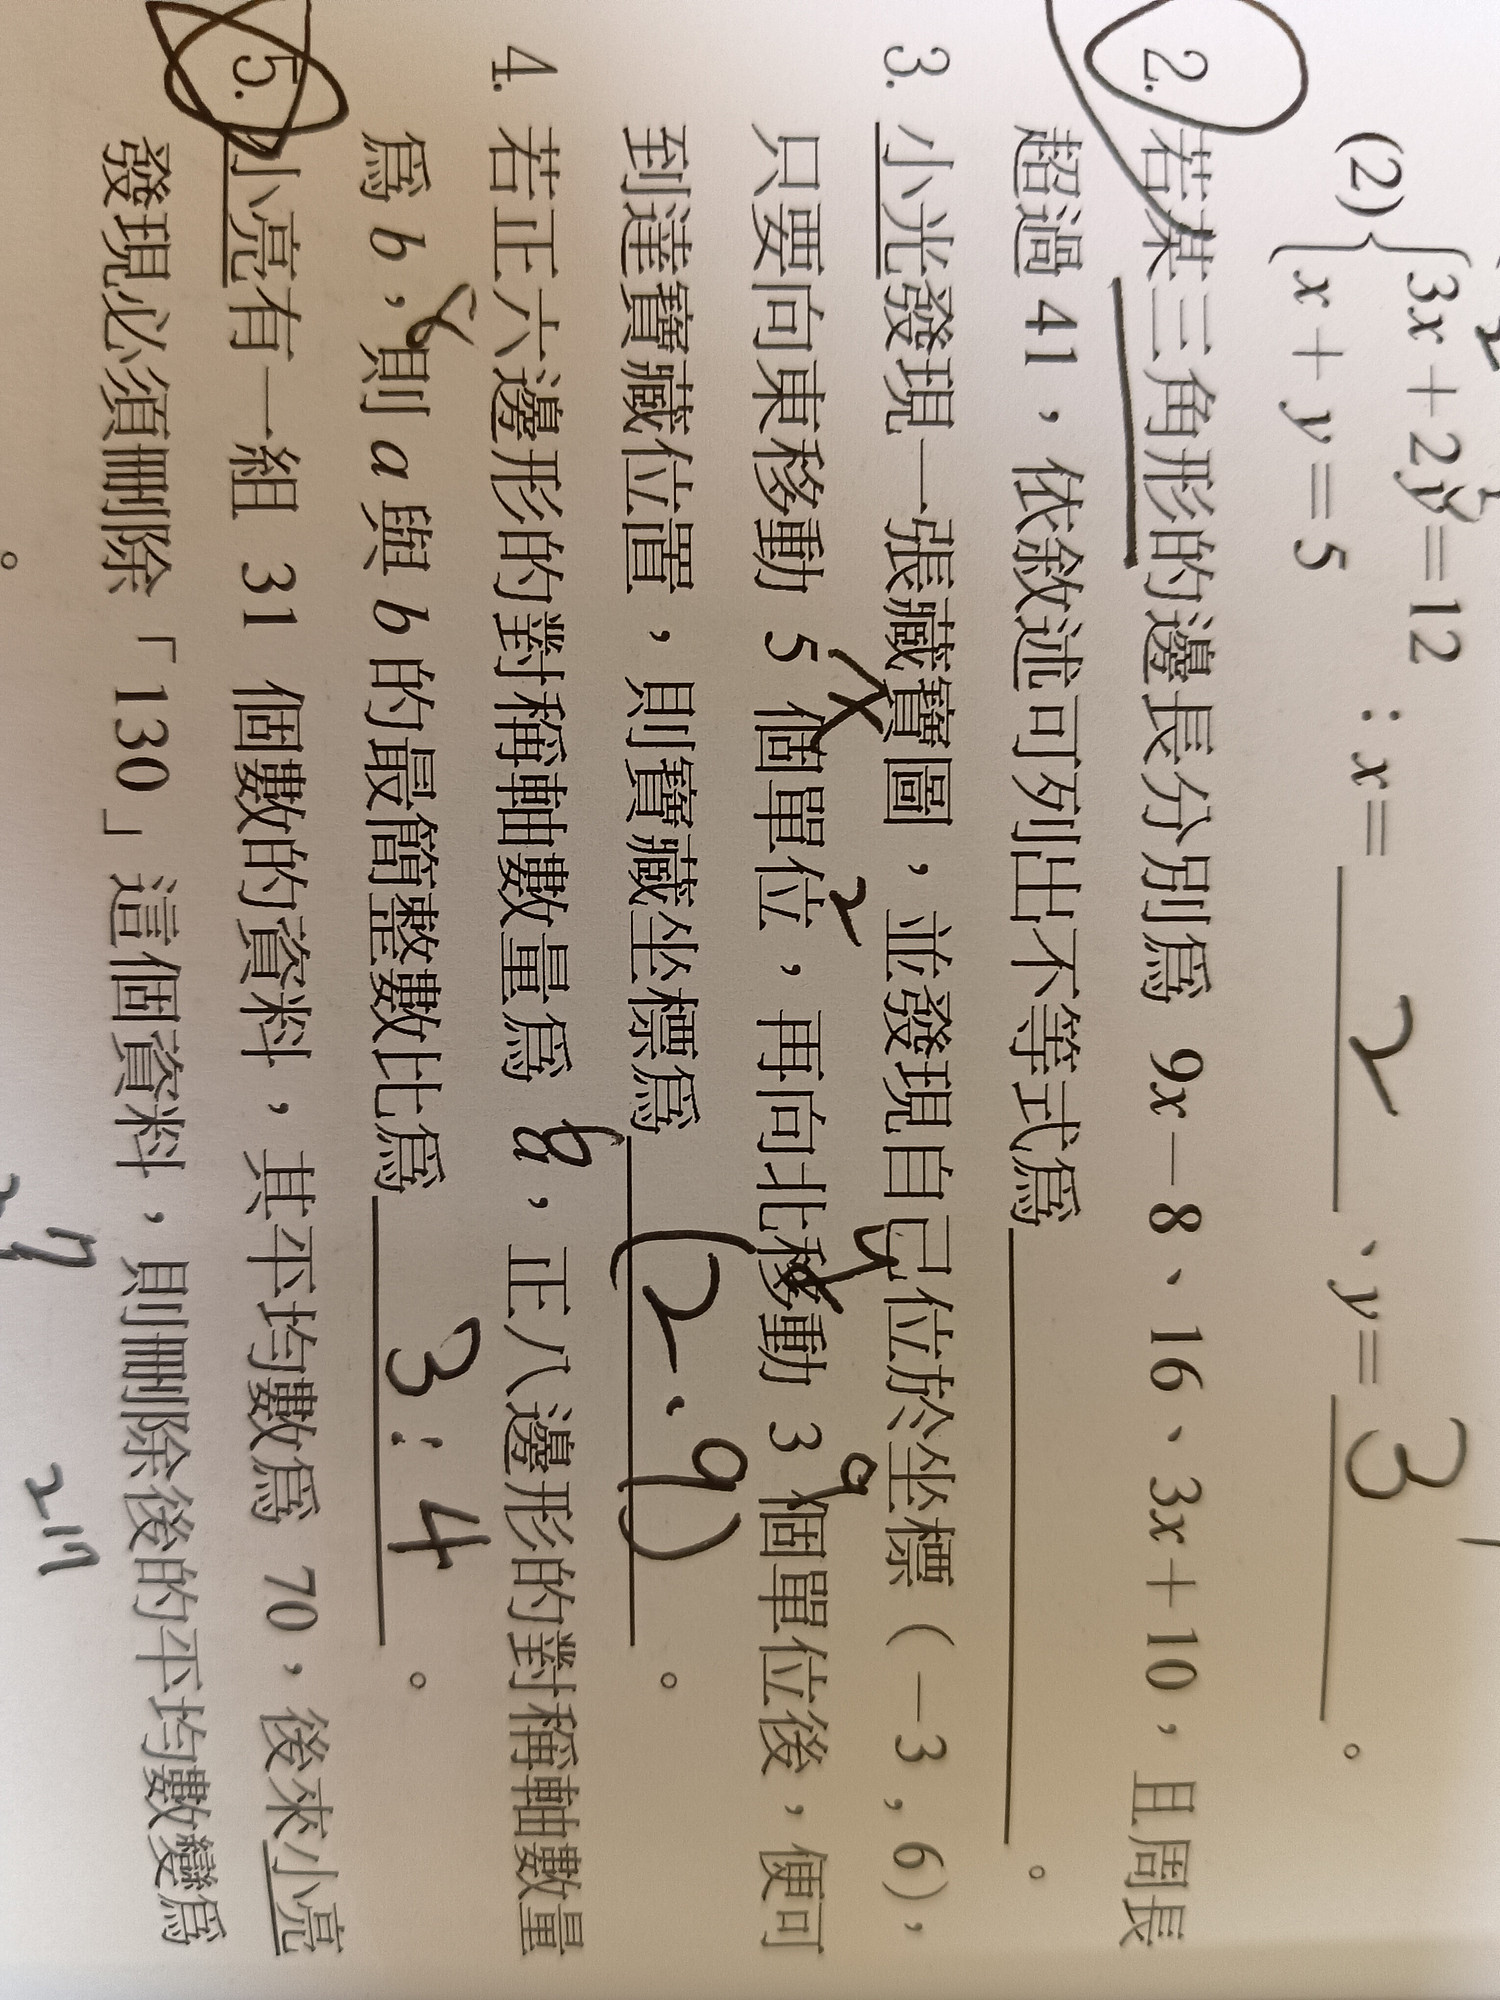 (2) { 3x+2y=12
x+y=5 : x= 2 、y= 3 。
2. 若某三角形的邊長分別爲 9x-8、16、3x+10,且周長
超過 41,依敘述可列出不等式爲 。
3. 小光發現一張藏寶圖,並發現自己位於坐標(-3,6),
x 2 y 9
只要向東移動 5 個單位,再向北移動 3 個單位後,便可
到達寶藏位置,則寶藏坐標爲 (2.9) 。
4. 若正六邊形的對稱軸數量爲 a,正八邊形的對稱軸數量
6
爲 b,則 a 與 b 的最簡整數比爲 3:4 。
8
5. 小亮有一組 31 個數的資料,其平均數爲 70,後來小亮
發現必須刪除「130」這個資料,則刪除後的平均數變爲
。
217